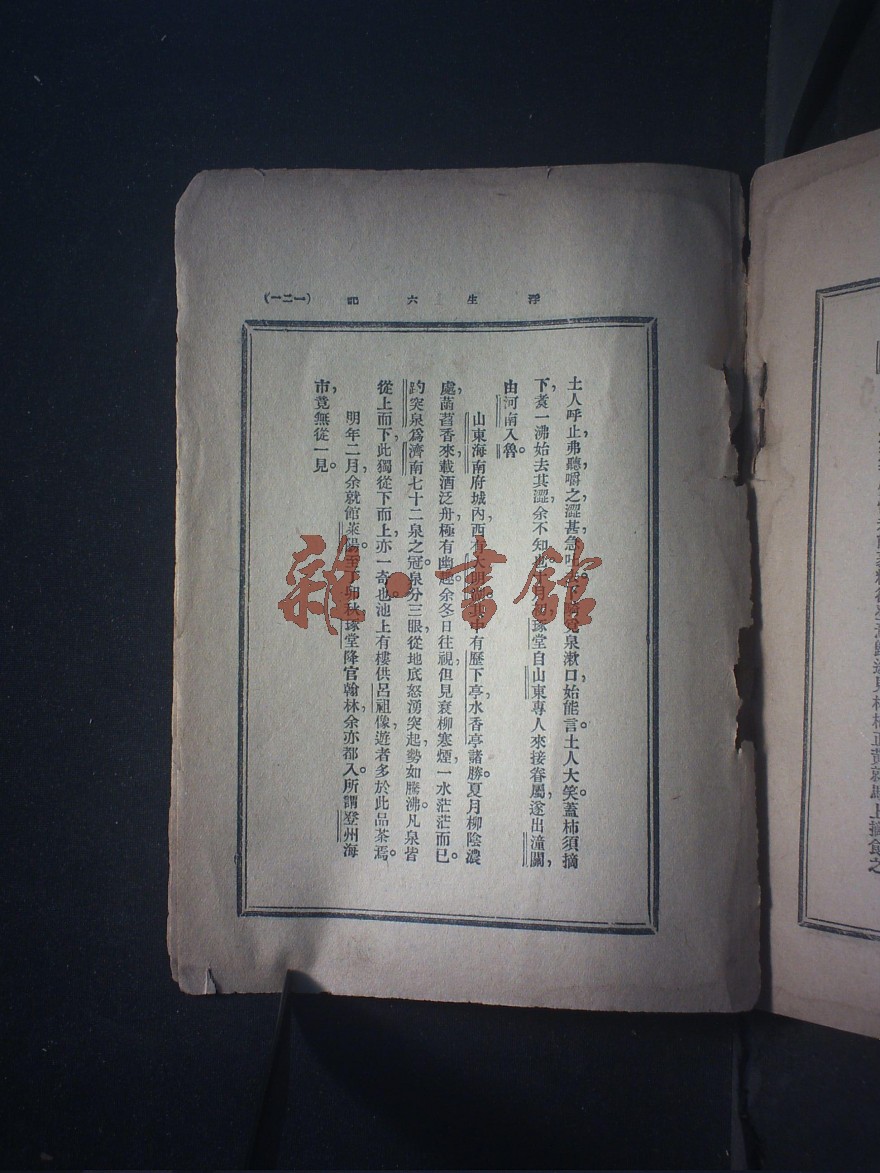 浮生六記 (一二一)
土人呼止,弗聽,嚼之,澀甚,急吐去,下 覓泉漱口,始能言。土人大笑。蓋柿須摘
下,煑一沸,始去其澀,余不知也。十月初,琢堂自山東專人來接眷屬,遂出潼關,
由河南入魯。
山東海南府城內,西有大明湖,其中有歷下亭,水香亭諸勝。夏月柳陰濃
處,菡萏香來,載酒泛舟,極有幽趣。余冬日往視,但見衰柳寒煙,一水茫茫而已。
趵突泉爲濟南七十二泉之冠,泉分三眼,從地底怒湧突起,勢如騰沸。凡泉皆
從上而下,此獨從下而上,亦一奇也。池上有樓,供呂祖像,遊者多於此品茶焉。
明年二月,余就館萊陽。至丁卯秋,琢堂降官翰林,余亦都入。所謂登州海
市,竟無從一見。
雜·書館